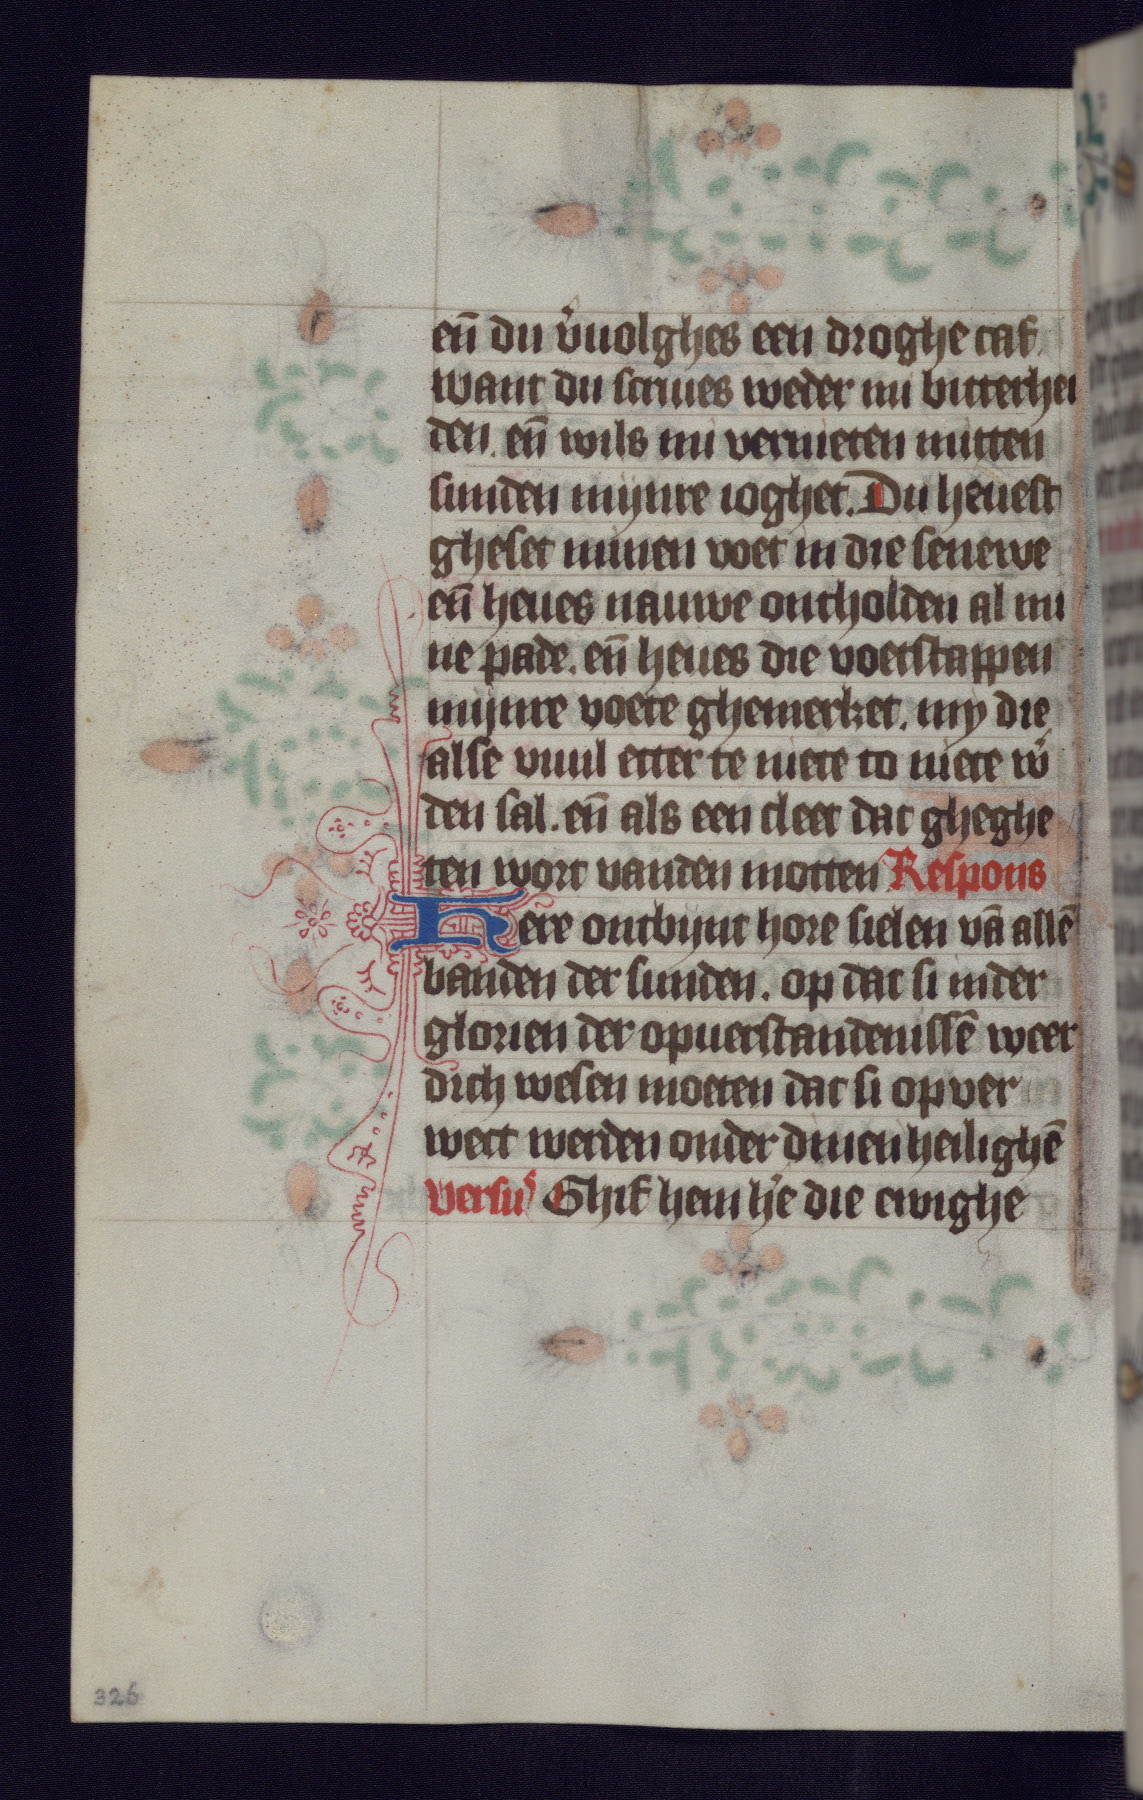 en̄ du v̾uolghes een droghe caf.
want du scriues weder mi bitterhei
den. en̄ wils mi vernieten mitten
sunden mijnre ioghet. Du heuest
gheset minen voet in die senewe
en̄ heues nauwe ontholden al mi
ne pade. en̄ heues die voetstappen
mijnre voete ghemerket. my die
alse vuul etter te niete to niete w̾
den sal. en̄ als een cleet dat gheghe
ten wort vanden motten Respons
Here ontbijnt hore sielen vā allē
banden der sunden. op dat si inder
glorien der opuerstandenissē weer
dich wesen moeten dat si op ver
wect werden onder dinen heilighē
versu᷒ Ghif hem h̾e die ewighe
326